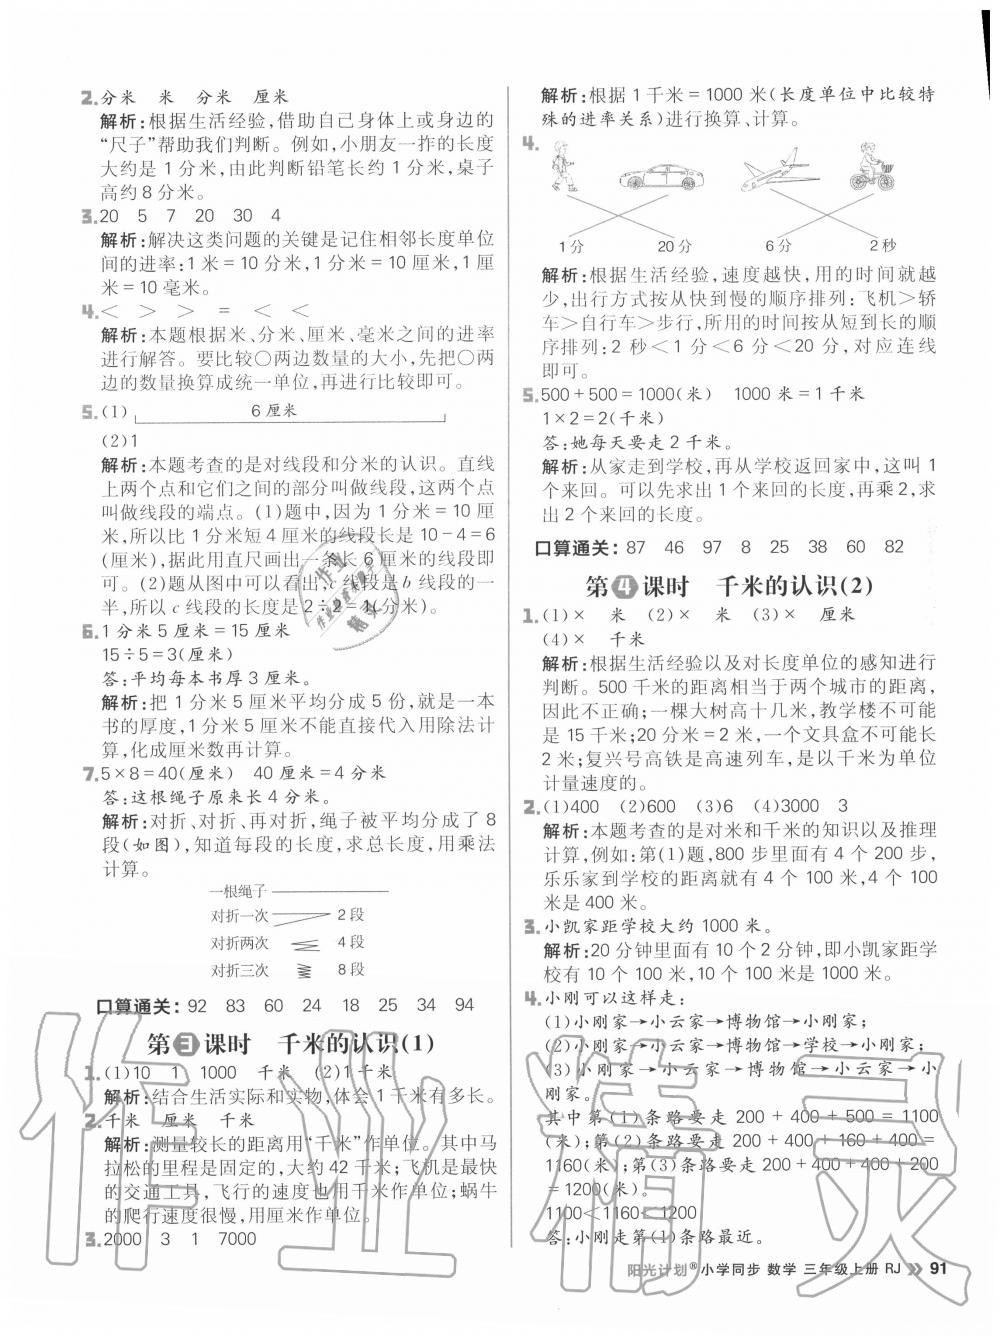 2.分米 米 分米 厘米
解析:根据生活经验,借助自己身体上或身边的
“尺子”帮助我们判断。例如,小朋友一拃的长度
大约是1分米,由此判断铅笔长约1分米,桌子
高约8分米。
3.20 5 7 20 30 4
解析:解决这类问题的关键是记住相邻长度单位
间的进率:1米=10分米,1分米=10厘米,1厘
米=10毫米。
4.< > > = < <
解析:本题根据米、分米、厘米、毫米之间的进率
进行解答。要比较○两边数量的大小,先把○两
边的数量换算成统一单位,再进行比较即可。
5.(1) 6厘米
(2)1
解析:本题考查的是对线段和分米的认识。直线
上两个点和它们之间的部分叫做线段,这两个点
叫做线段的端点。(1)题中,因为1分米=10厘
米,所以比1分米短4厘米的线段长是10-4=6
(厘米),用直尺画出一条长6厘米的线段即
可。(2)题从图中可以看出,c线段是b线段的一
半,所以c线段的长度是2÷2=1(分米)。
6.1分米5厘米=15厘米
15÷5=3(厘米)
答:平均每本书厚3厘米。
解析:把1分米5厘米平均分成5份,就是一本
书的厚度,1分米5厘米不能直接代入用除法计
算,化成厘米数再计算。
7.5×8=40(厘米) 40厘米=4分米
答:这根绳子原来长4分米。
解析:对折、对折、再对折,绳子被平均分成了8
段(如图),知道每段的长度,求总长度,用乘法
计算。
一根绳子
对折一次 2段
对折两次 4段
对折三次 8段
口算通关:92 83 60 24 18 25 34 94
第3课时 千米的认识(1)
1.(1)10 1 1000 千米 (2)1千米
解析:结合生活实际和实物,体会1千米有多长。
2.千米 厘米 千米
解析:测量较长的距离用“千米”作单位。其中马
拉松的里程是固定的,大约42千米;飞机是最快
的交通工具,飞行的速度也用千米作单位;蜗牛
的爬行速度很慢,用厘米作单位。
3.2000 3 1 7000
解析:根据1千米=1000米(长度单位中比较特
殊的进率关系)进行换算、计算。
4.
1分 20分 6分 2秒
解析:根据生活经验,速度越快,用的时间就越
少,出行方式按从快到慢的顺序排列:飞机>轿
车>自行车>步行,所用的时间按从短到长的顺
序排列:2秒<1分<6分<20分,对应连线
即可。
5.500+500=1000(米) 1000米=1千米
1×2=2(千米)
答:她每天要走2千米。
解析:从家走到学校,再从学校返回家中,这叫1
个来回。可以先求出1个来回的长度,再乘2,求
出2个来回的长度。
口算通关:87 46 97 8 25 38 60 82
第4课时 千米的认识(2)
1.(1)× 米 (2)× 米 (3)× 厘米
(4)× 千米
解析:根据生活经验以及对长度单位的感知进行
判断。500千米的距离相当于两个城市的距离,
因此不正确;一棵大树高十几米,教学楼不可能
是15千米;20分米=2米,一个文具盒不可能长
2米;复兴号高铁是高速列车,是以千米为单位
计量速度的。
2.(1)400 (2)600 (3)6 (4)3000 3
解析:本题考查的是对米和千米的知识以及推理
计算,例如:第(1)题,800步里面有4个200步,
乐乐家到学校的距离就有4个100米,4个100
米是400米。
3.小凯家距学校大约1000米。
解析:20分钟里面有10个2分钟,即小凯家距学
校有10个100米,10个100米是1000米。
4.小刚可以这样走:
(1)小刚家→小云家→博物馆→小刚家;
(2)小刚家→小云家→博物馆→学校→小刚家;
(3)小刚家→小云家→博物馆→小云家→小
刚家。
其中第(1)条路要走200+400+500=1100
(米);第(2)条路要走200+400+160+400=
1160(米);第(3)条路要走200+400+400+200
=1200(米)。
1100<1160<1200
答:小刚走第(1)条路最近。
阳光计划®小学同步 数学 三年级上册 RJ 91
作业精灵